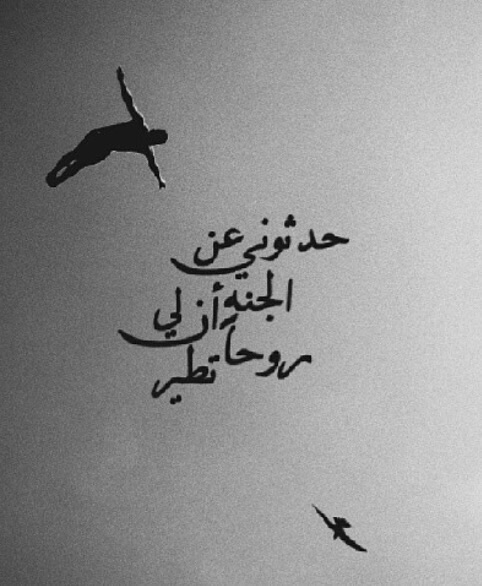 حدثوني عن
الجنه أن لي
روحاً تطير